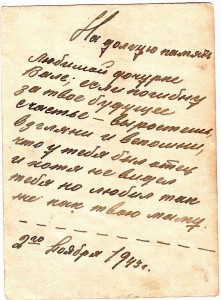 На долгую память
любимой дочурке
Вале; если погибну
за твое будущее
счастье – вырастешь,
взгляни и вспомни,
что у тебя был отец
и хотя не видел
тебя но любил так
же как твою маму.
2го Ноября 1943г.